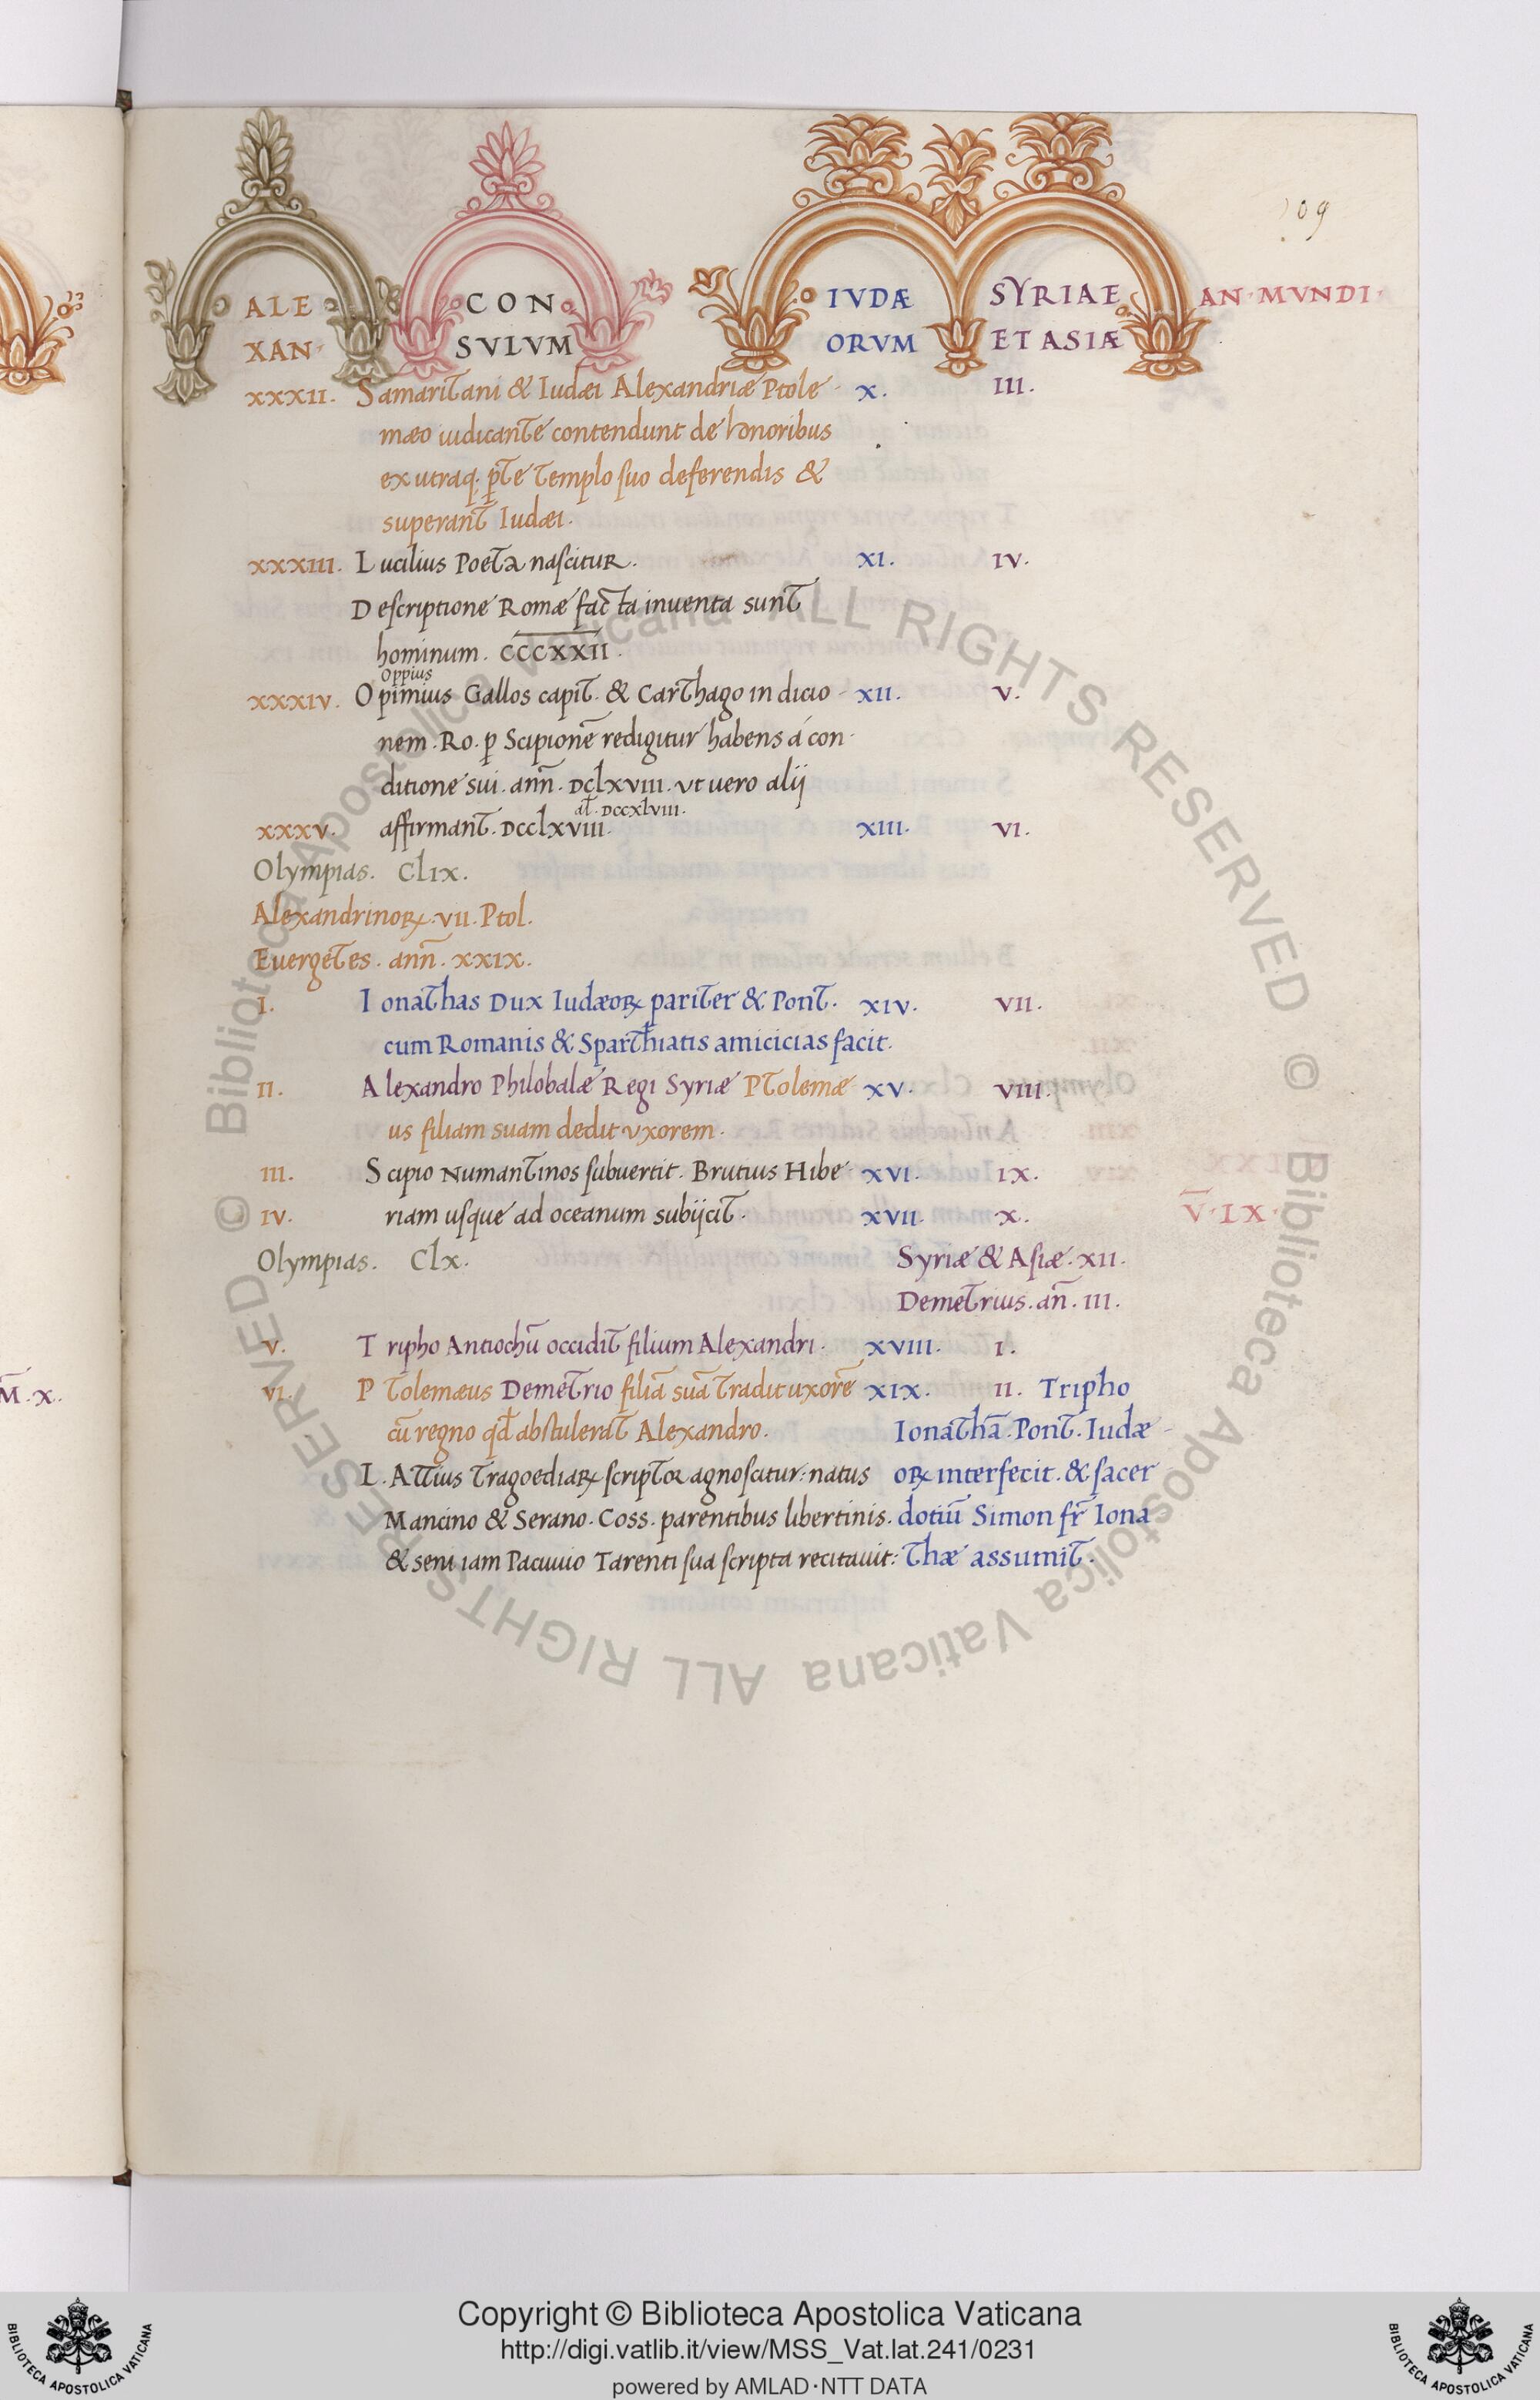 109
ALE CON IVDÆ SYRIAE AN·MVNDI·
XAN· SVLVM ORVM ET ASIÆ
XXXII. Samaritani & Iudæi Alexandriæ Ptole- X. III.
mæo iudicante contendunt de honoribus
ex utraq; p̱te templo suo deferendis &
superant Iudæi.
XXXIII. Lucilius Poeta nascitur. XI. IV.
Descriptione Romæ facta inuenta sunt
hominum. C̅C̅C̅X̅X̅I̅I̅.
Oppius
XXXIV. Opimius Gallos capit. & Carthago in dicio- XII. V.
nem. Ro. p̱ Scipionē redigitur habens á con-
ditione sui. ann̄. DClXVIII. vt uero alij
al̄. DCCXlVIII.
XXXV. affirmant. DCClXVIII. XIII. VI.
Olympias. ClIX.
Alexandrinoꝝ. VII. Ptol.
Euergetes. ann̄. XXIX.
I. Ionathas Dux Iudæoꝝ pariter & Pont. XIV. VII.
cum Romanis & Sparthiatis amicicias facit.
II. Alexandro Philobalæ Regi Syriæ Ptolemæ XV. VIII.
us filiam suam dedit vxorem.
III. Scipio Numantinos subuertit. Brutius Hibe- XVI. IX.
IV. riam usque ad oceanum subijcit. XVII. X. V̅·IX·
Olympias. ClX. Syriæ & Asiæ. XII.
Demetrius. an̄. III.
M̅.X.
V. Tripho Antiochū occidit filium Alexandri. XVIII. I.
VI. Ptolemæus Demetrio filiā suā tradit uxorē XIX. II. Tripho
cū regno qd̄ abstulerat Alexandro. Ionathā. Pont. Iudæ-
L. Attius Tragoediaꝝ scriptor agnoscitur: natus oꝝ interfecit. & sacer
Mancino & Serano. Coss. parentibus libertinis. dotiū Simon fr̄ Iona
& seni iam Pacuuio Tarenti sua scripta recitauit: thæ assumit.
© Biblioteca Apostolica Vaticana ALL RIGHTS RESERVED
© Biblioteca Apostolica Vaticana ALL RIGHTS RESERVED
Copyright © Biblioteca Apostolica Vaticana
http://digi.vatlib.it/view/MSS_Vat.lat.241/0231
powered by AMLAD·NTT DATA
BIBLIOTECA APOSTOLICA VATICANA
BIBLIOTECA APOSTOLICA VATICANA